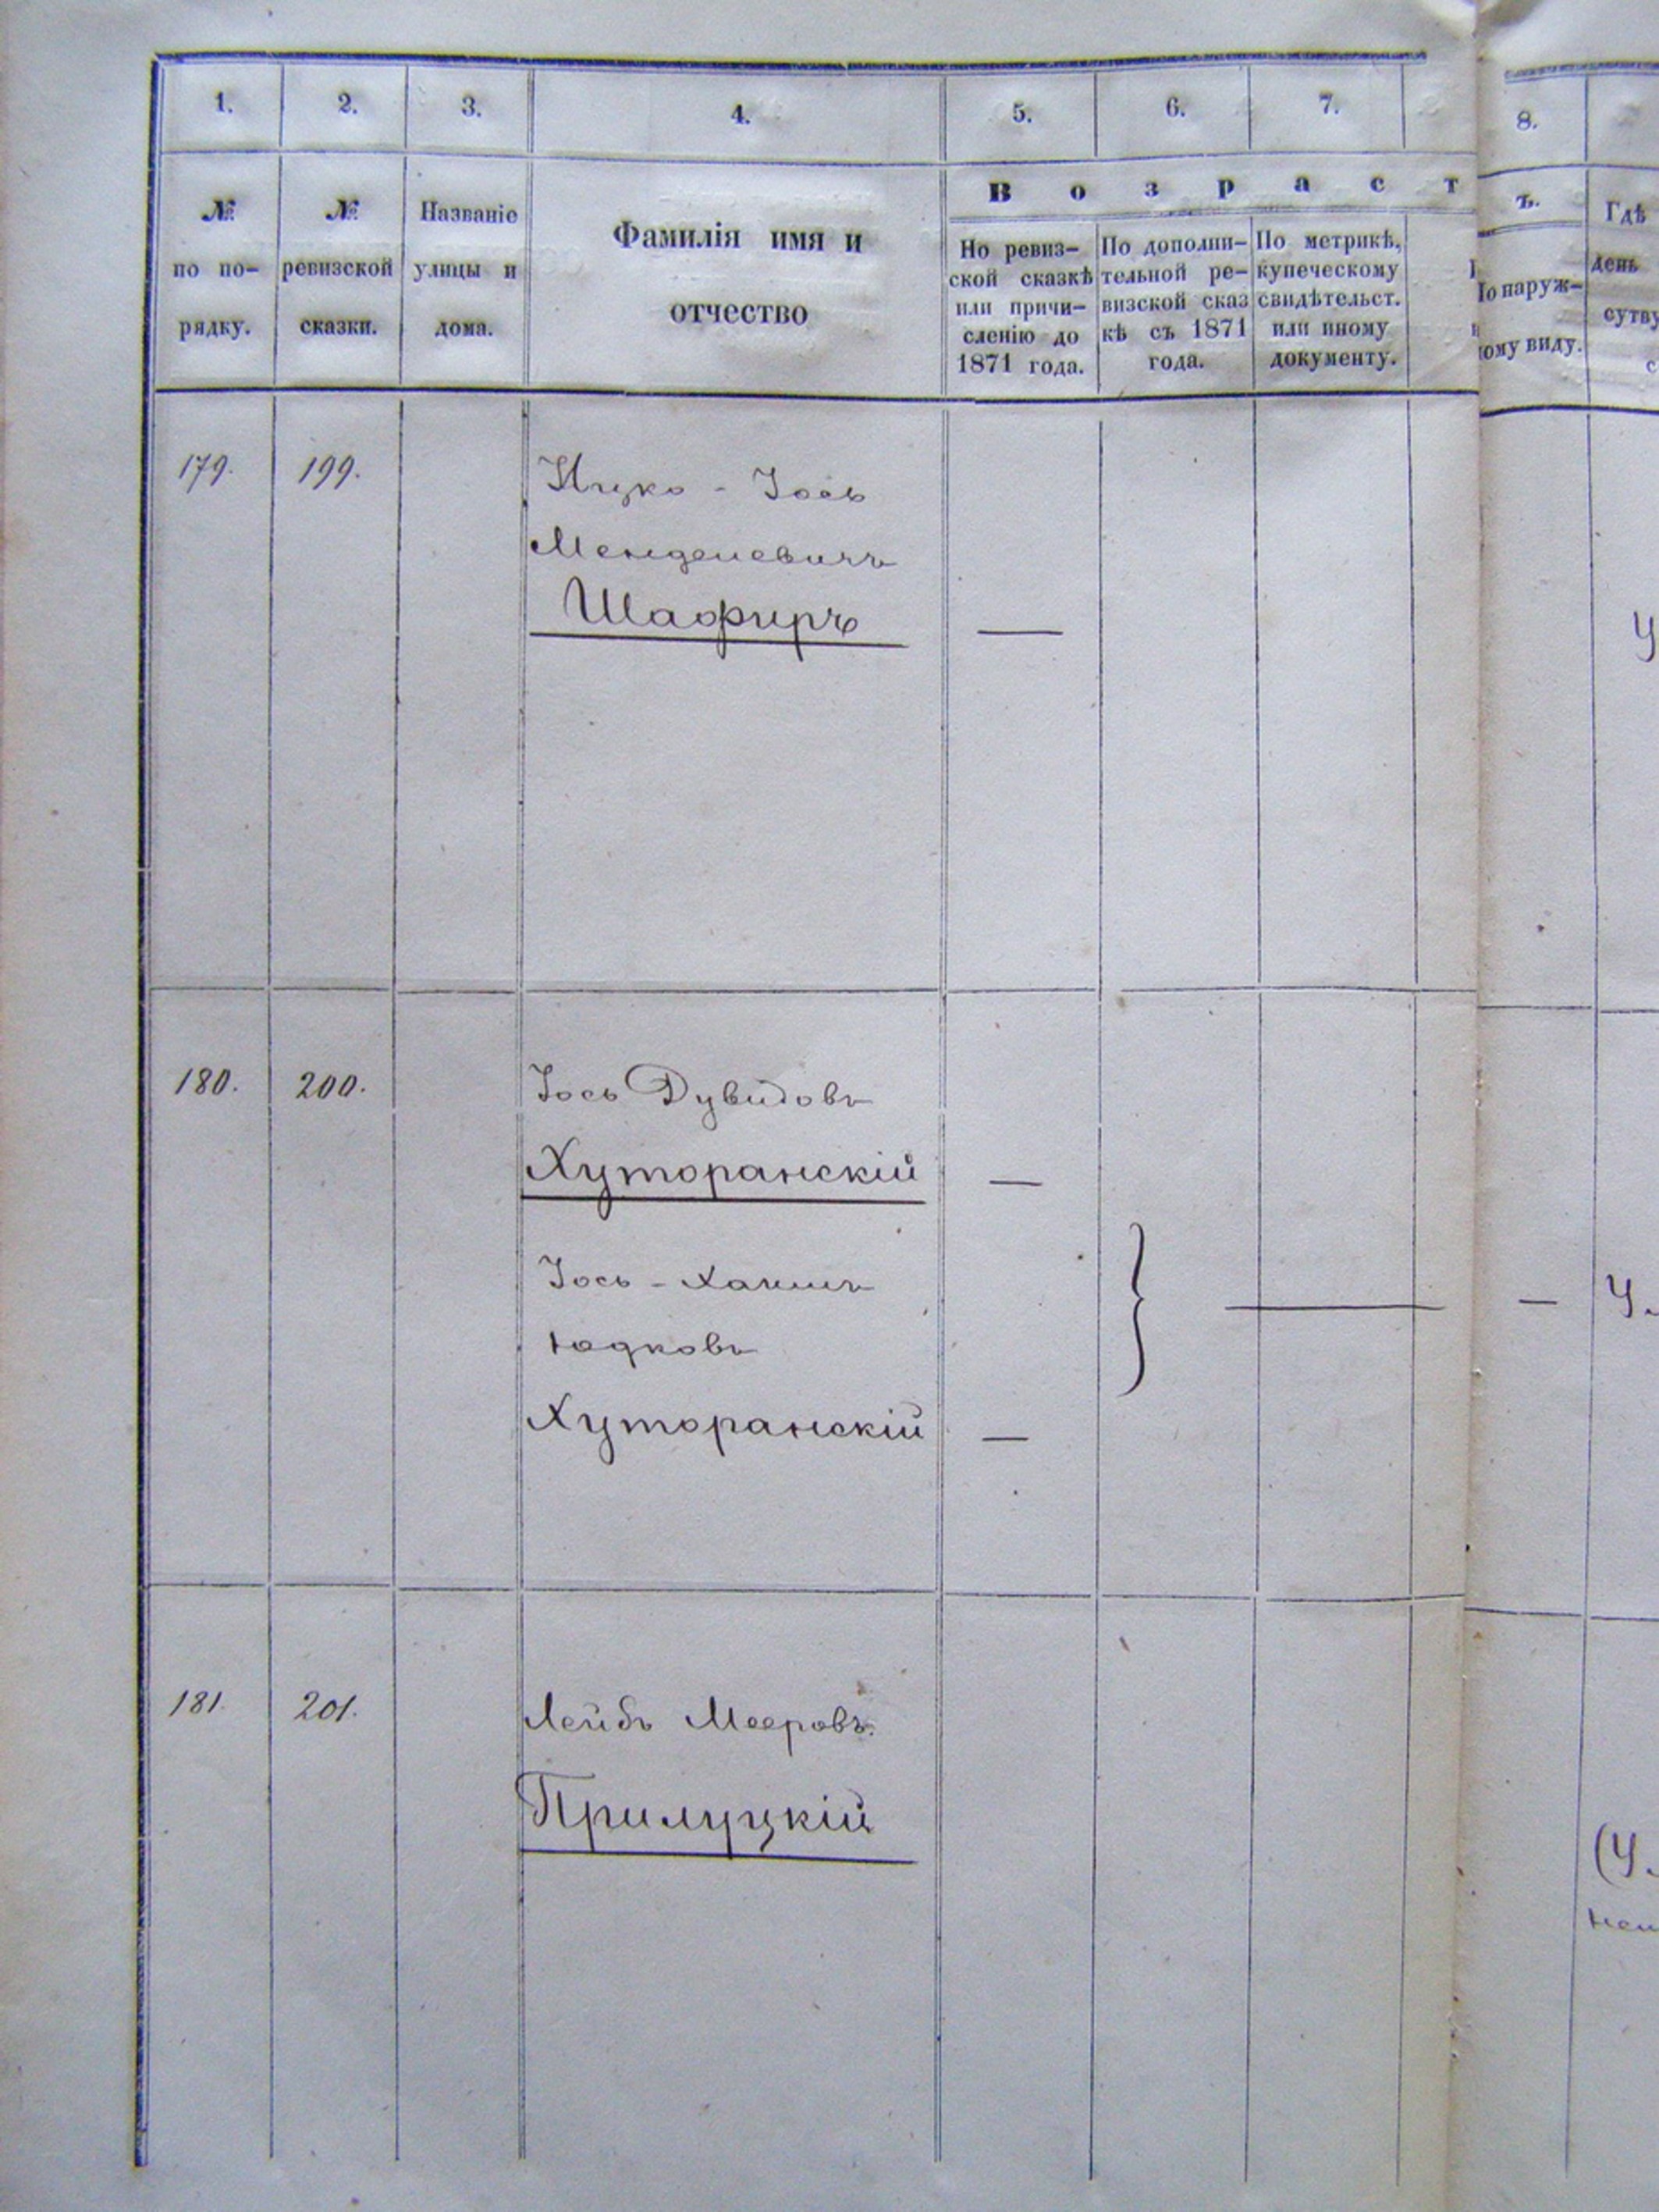 1. 2. 3. 4. 5. 6. 7. 8.
В о з р а с т ъ.
№ по по-рядку.
№ ревизской сказки.
Названіе улицы и дома.
Фамилія имя и отчество
Но ревиз-
ской сказкѣ
или причи-
сленію до
1871 года.
По дополни-
тельной ре-
визской сказ
кѣ съ 1871
года.
По метрикѣ,
купеческому
свидѣтельст.
или иному
документу.
наруж-
ому виду.
Гдѣ
день
сутву
179. 199. Ицко - Іось
Менделевичъ
Шафиръ —
180. 200. Іось Дувидовъ
Хуторанскій —
Іось - Хаимъ
Юдковъ
Хуторанскій —
181. 201. Лейбъ Мееровъ.
Прилуцкій